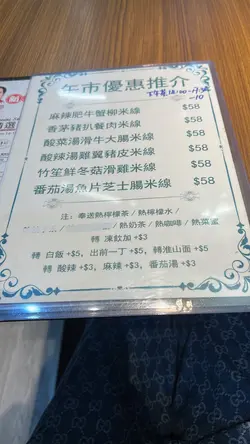 午市優惠推介
麻辣肥牛蟹柳米線 $58
香茅豬扒餐肉米線 $58
酸菜湯滑牛大腸米線 $58
酸辣湯雞翼豬皮米線 $58
竹笙鮮冬菇滑雞米線 $58
番茄湯魚片芝士腸米線 $58
注：奉送熱檸檬茶 / 熱檸檬水 /
/ 熱奶茶 / 熱咖啡 / 熱菜蜜
轉 凍飲加 +$3
轉 白飯 +$5, 出前一丁 +$5, 轉淮山面 +$5
轉 酸辣 +$3, 麻辣 +$3, 番茄湯 +$3